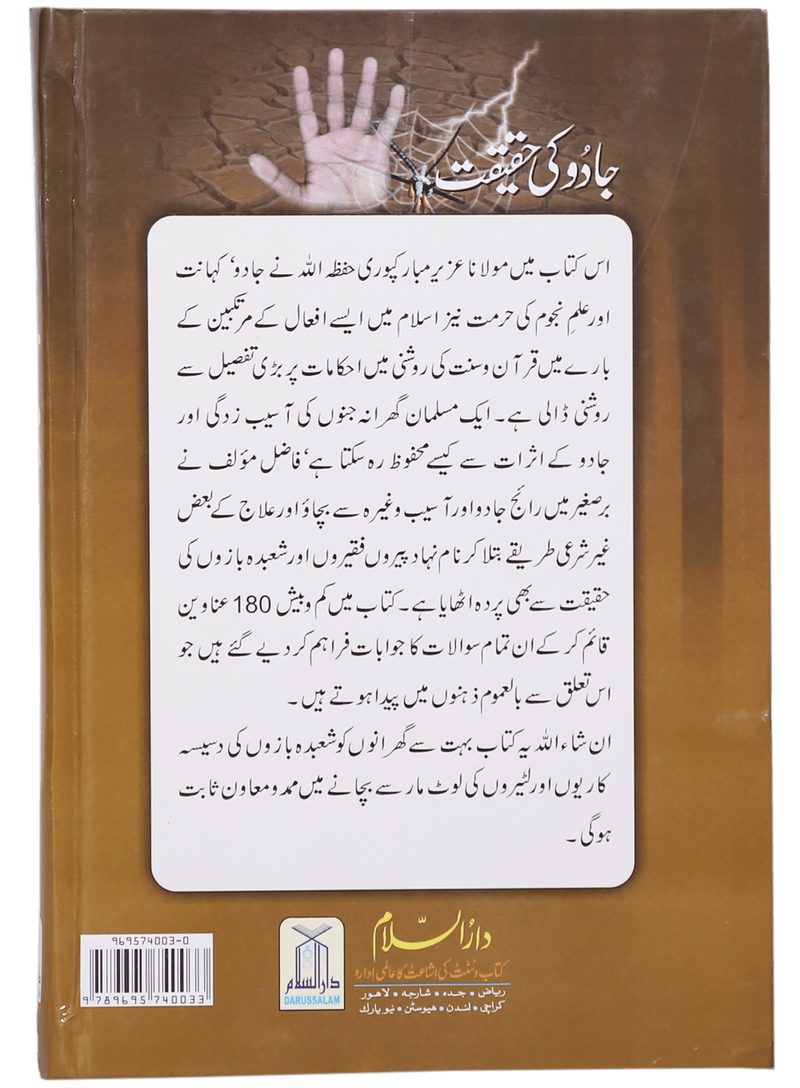 جادُو کی حقیقت
اس کتاب میں مولانا عزیر مبارکپوری حفظہ اللہ نے جادو، کہانت
اور علمِ نجوم کی حرمت نیز اسلام میں ایسے افعال کے مرتکبین کے
بارے میں قرآن وسنت کی روشنی میں احکامات پر بڑی تفصیل سے
روشنی ڈالی ہے۔ ایک مسلمان گھرانہ جنوں کی آسیب زدگی اور
جادو کے اثرات سے کیسے محفوظ رہ سکتا ہے، فاضل مؤلف نے
برصغیر میں رائج جادو اور آسیب وغیرہ سے بچاؤ اور علاج کے بعض
غیر شرعی طریقے بتلا کر نام نہاد پیروں فقیروں اور شعبدہ بازوں کی
حقیقت سے بھی پردہ اٹھایا ہے۔ کتاب میں کم وبیش 180 عناوین
قائم کر کے ان تمام سوالات کا جوابات فراہم کر دیے گئے ہیں جو
اس تعلق سے بالعموم ذہنوں میں پیدا ہوتے ہیں۔
ان شاء اللہ یہ کتاب بہت سے گھرانوں کو شعبدہ بازوں کی دسیسہ
کاریوں اور لٹیروں کی لوٹ مار سے بچانے میں ممد ومعاون ثابت
ہوگی۔
دارُالسلّام
کتاب و سنت کی اشاعت کا عالمی ادارہ
ریاض • جدہ • شارجہ • لاہور
کراچی • لندن • ہیوسٹن • نیو یارک
دارالسلام
DARUSSALAM
969574003-0
9 789695 740033